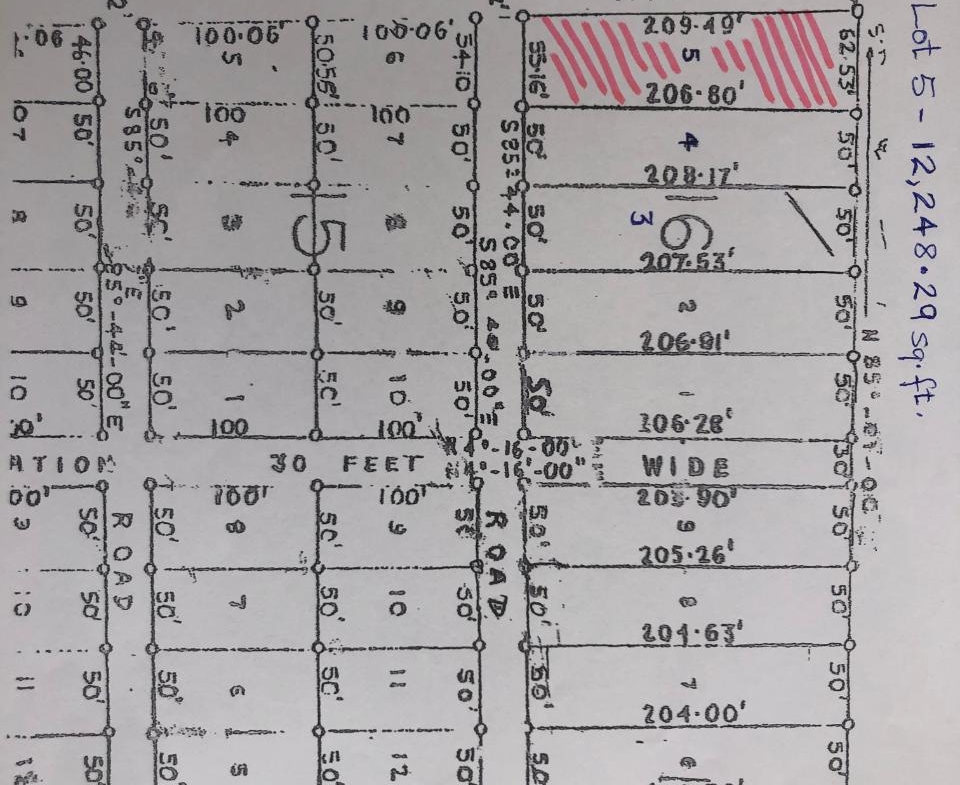 Lot 5 - 12,248.29 sq.ft.
100.06'
5
50.56'
100.06'
6
54.10
55.16'
209.49'
5
206.80'
62.53'
46.00
50'
S85°
50'
100
4
50'
100
7
50'
S85°44.00 E
50'
4
208.17'
50'
07
8
50'
50'
3
15
8
50'
50'
3
16
207.53'
50'
9
50'
85°-44-00" E
50'
2
50'
9
50'
S85° 44.00" E
50'
2
206.91'
50'
N 85°
10
50'
50'
1
100
50'
10
100'
50'
50'
1
206.28'
50'
ATION
30 FEET
4°-16'-00"
WIDE
30'
00'
ROAD
50'
50'
100'
8
50'
100'
9
50'
ROAD
50'
205.90'
9
205.26'
50'
10
50'
50'
7
50'
10
50'
50'
8
204.63'
50'
11
50'
50'
6
50'
11
50'
50'
7
204.00'
50'
50'
50'
5
50'
12
50'
50'
6
50'